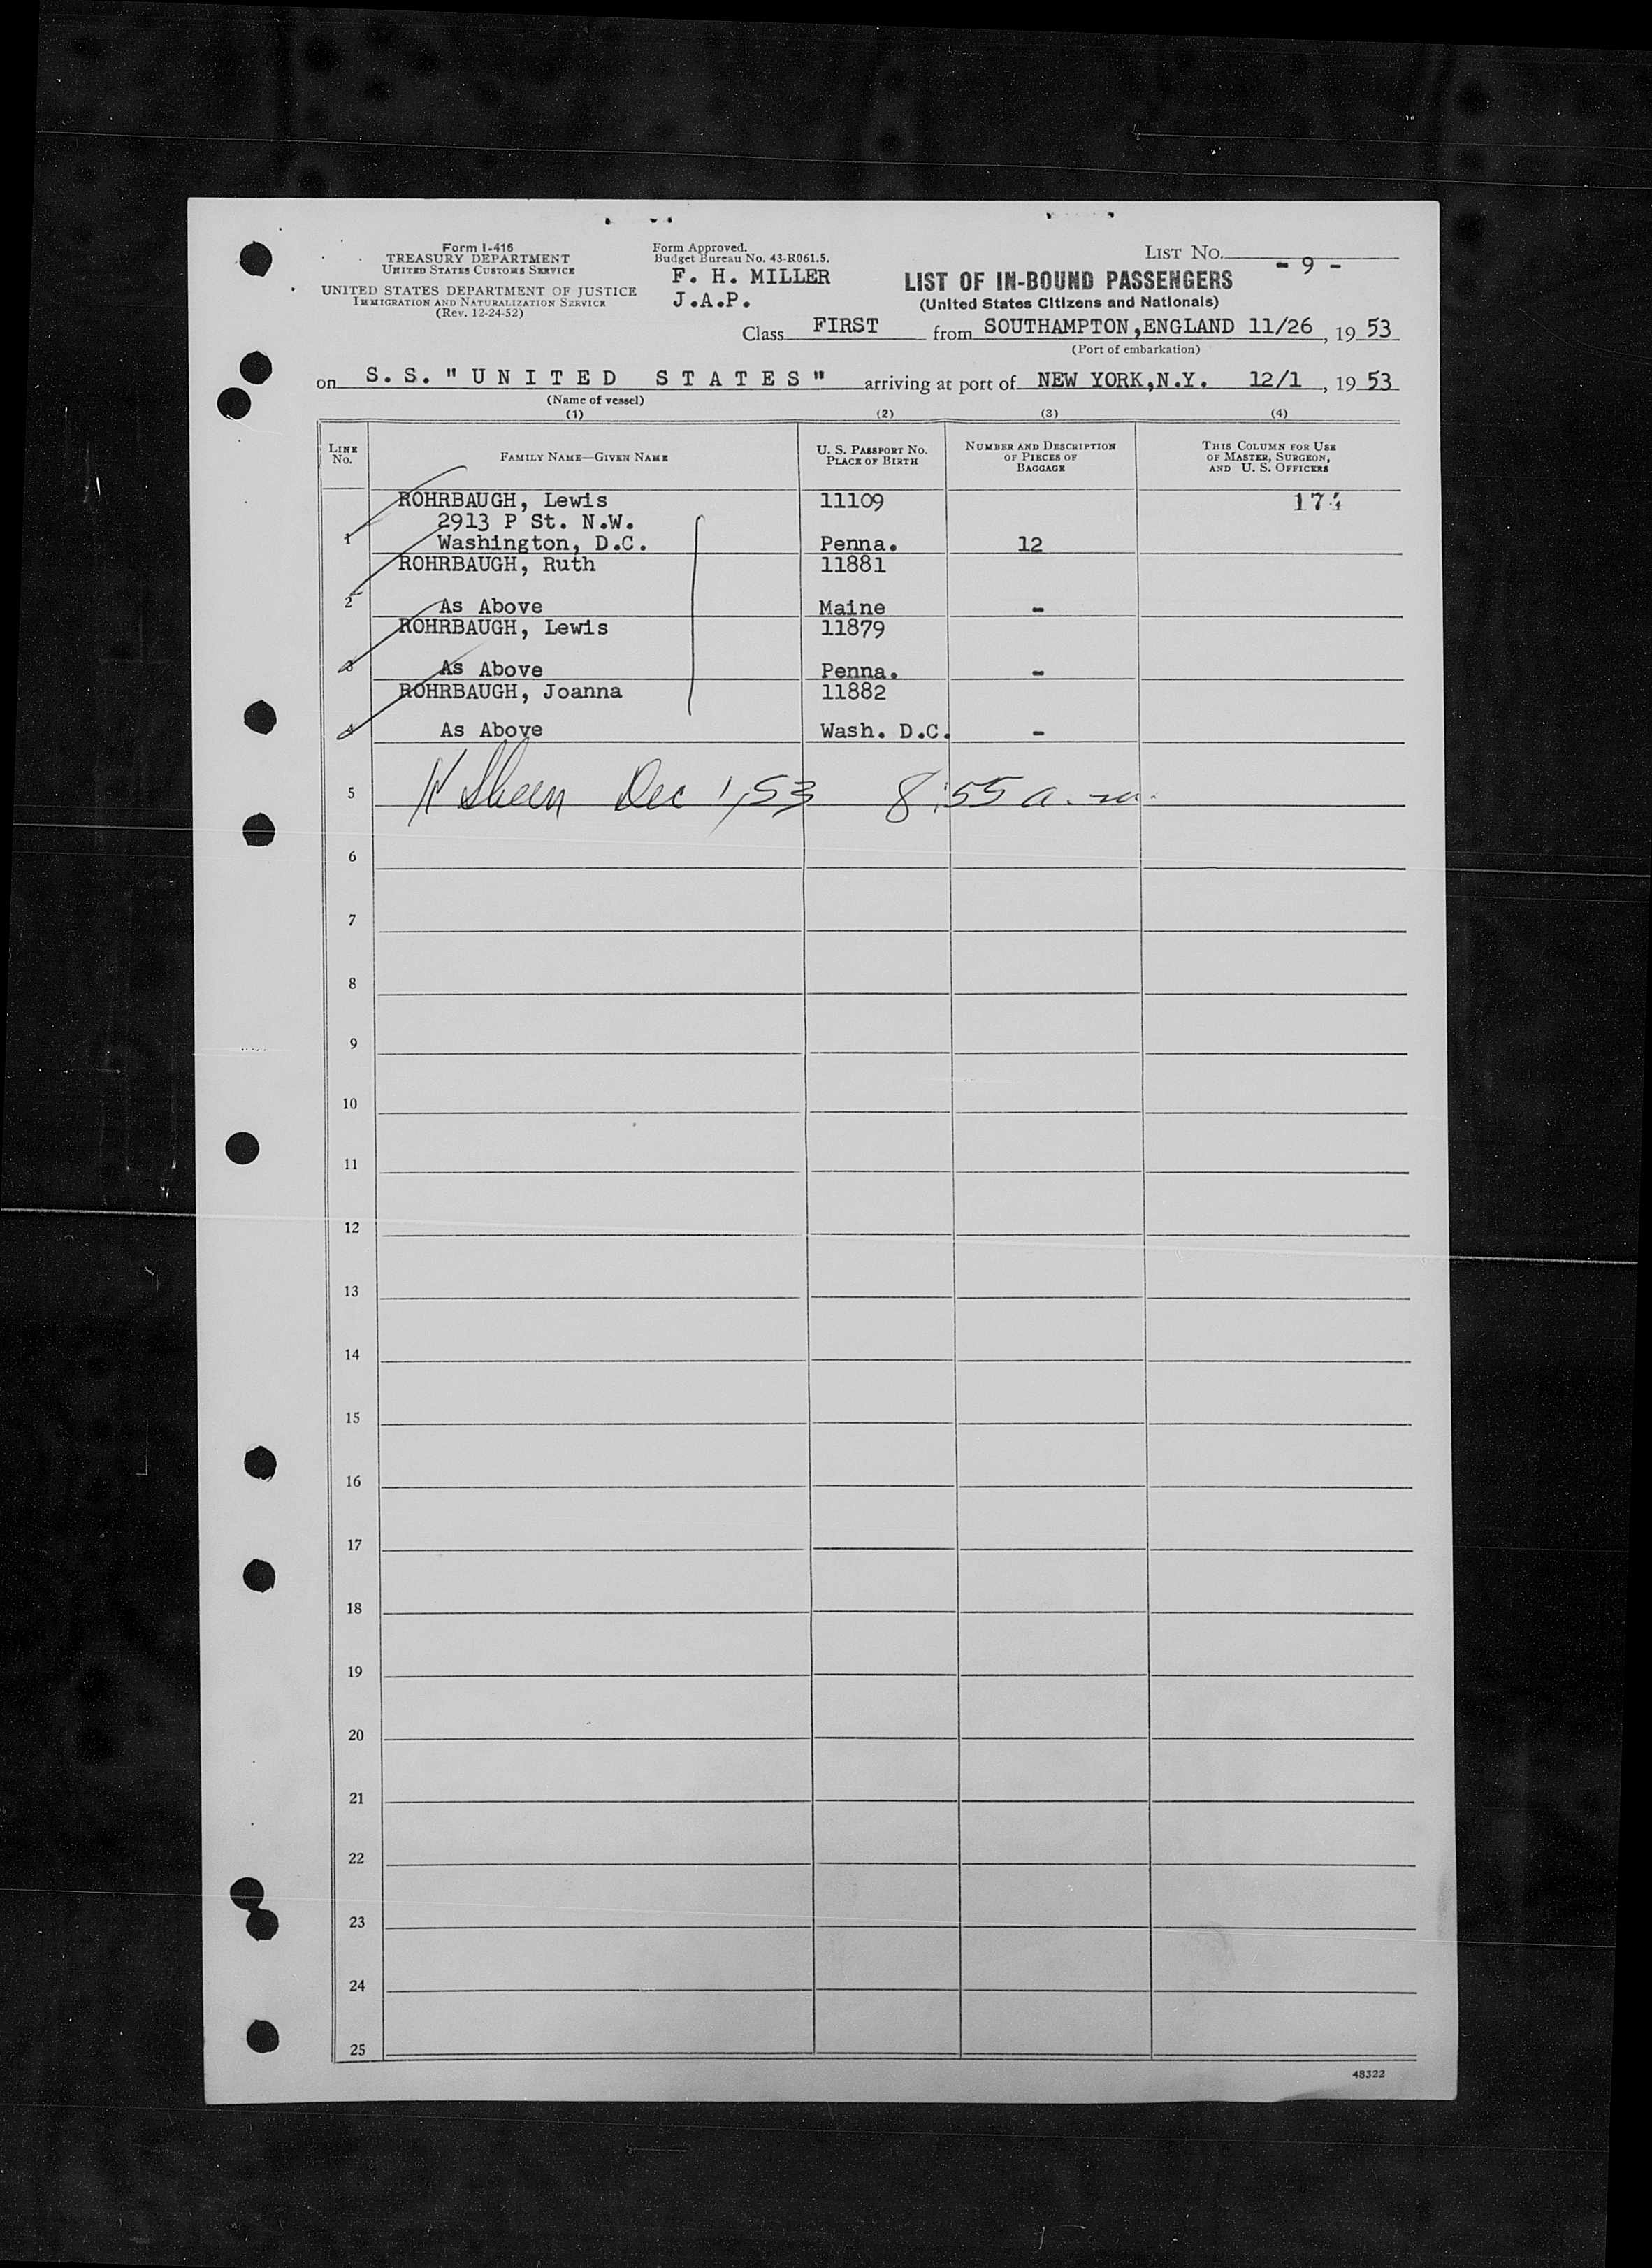 Form I-416
TREASURY DEPARTMENT
UNITED STATES CUSTOMS SERVICE
UNITED STATES DEPARTMENT OF JUSTICE
IMMIGRATION AND NATURALIZATION SERVICE
(Rev. 12-24-52)
Form Approved.
Budget Bureau No. 43-R061.5.
F. H. MILLER
J.A.P.
LIST NO. - 9 -
LIST OF IN-BOUND PASSENGERS
(United States Citizens and Nationals)
Class FIRST from SOUTHAMPTON,ENGLAND 11/26, 19 53
(Port of embarkation)
on S.S. "UNITED STATES" arriving at port of NEW YORK,N.Y. 12/1, 19 53
(Name of vessel)
(1) (2) (3) (4)
LINE No. FAMILY NAME—GIVEN NAME U. S. PASSPORT NO. PLACE OF BIRTH NUMBER AND DESCRIPTION OF PIECES OF BAGGAGE THIS COLUMN FOR USE OF MASTER, SURGEON, AND U. S. OFFICERS
ROHRBAUGH, Lewis 11109 174
2913 P St. N.W.
1 Washington, D.C. Penna. 12
ROHRBAUGH, Ruth 11881
2 As Above Maine -
ROHRBAUGH, Lewis 11879
3 As Above Penna. -
ROHRBAUGH, Joanna 11882
4 As Above Wash. D.C. -
5 Dec 1, 53 8:55 a.m.
6
7
8
9
10
11
12
13
14
15
16
17
18
19
20
21
22
23
24
25
48322